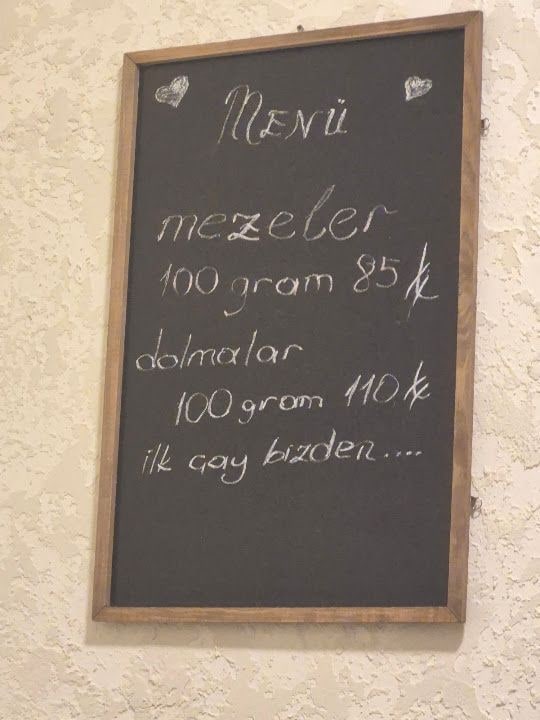 MENÜ
mezeler
100 gram 85 ₺
dolmalar
100 gram 110 ₺
ilk çay bizden....